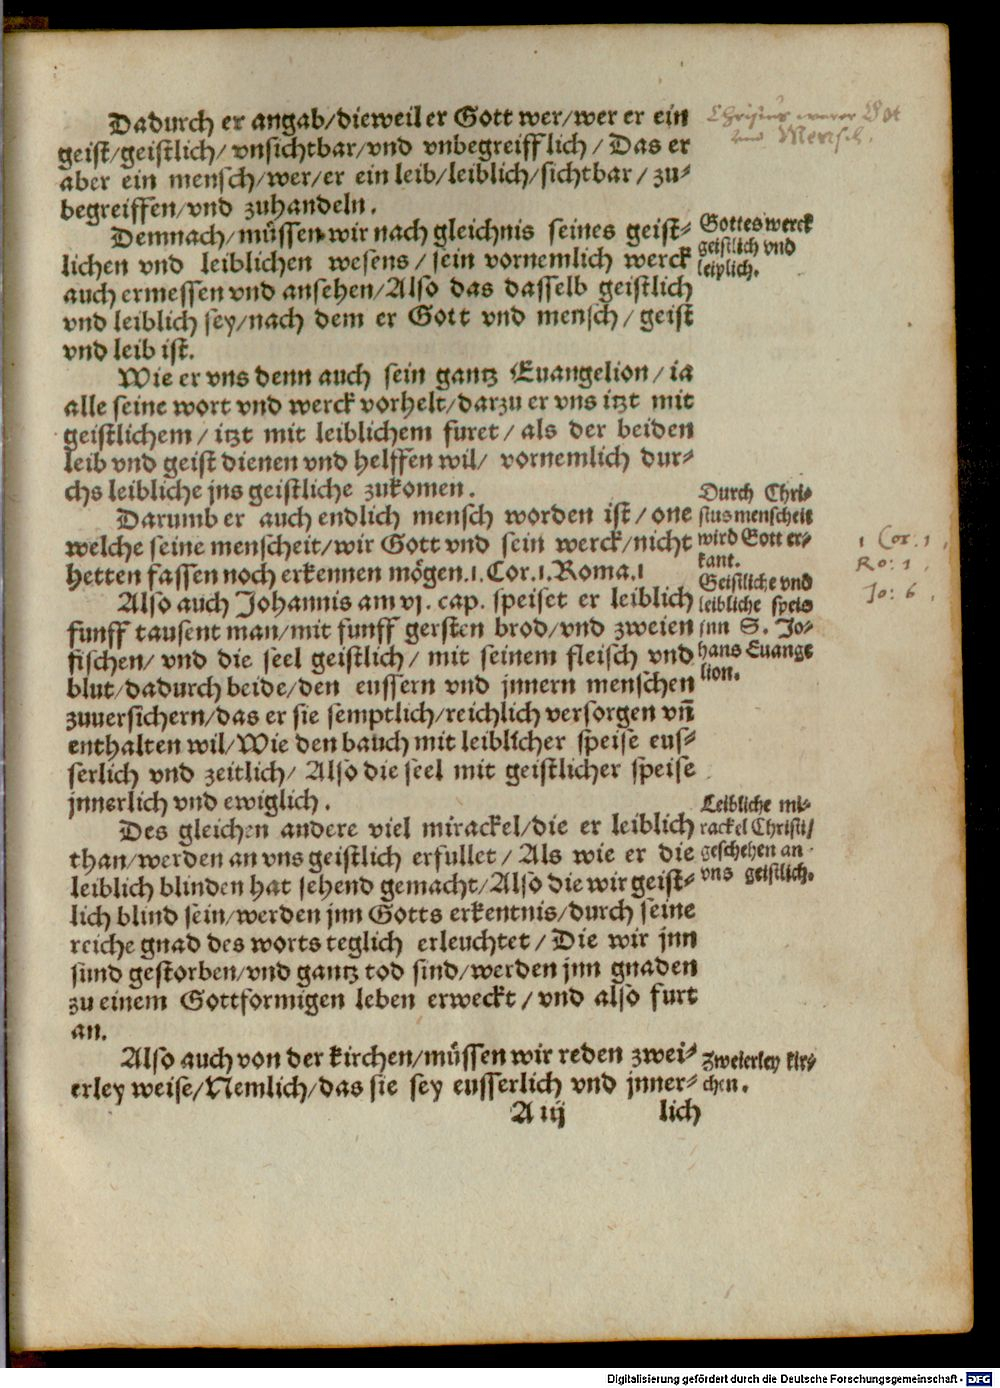 Dadurch er angab/dieweil er Gott wer/wer er ein
geist/geistlich/ vnsichtbar/vnd vnbegreifflich / Das er
aber ein mensch/wer/er ein leib/leiblich/sichtbar / zu-
begreiffen/vnd zuhandeln.
Demnach/müssen wir nach gleichnis seines geist-
lichen vnd leiblichen wesens / sein vornemlich werck
auch ermessen vnd ansehen/Also das dasselb geistlich
vnd leiblich sey/nach dem er Gott vnd mensch / geist
vnd leib ist.
Wie er vns denn auch sein gantz Euangelion / ia
alle seine wort vnd werck vorhelt/darzu er vns itzt mit
geistlichem / itzt mit leiblichem furet / als der beiden
leib vnd geist dienen vnd helffen wil/ vornemlich dur-
chs leibliche jns geistliche zukomen.
Darumb er auch endlich mensch worden ist / one
welche seine menscheit/wir Gott vnd sein werck/nicht
hetten fassen noch erkennen mögen.1.Cor.1.Roma.1
Also auch Johannis am vj. cap. speiset er leiblich
funff tausent man/mit funff gersten brod/vnd zweien
fischen/ vnd die seel geistlich / mit seinem fleisch vnd
blut/dadurch beide/den eussern vnd jnnern menschen
zuuersichern/das er sie semptlich/reichlich versorgen vn̄
enthalten wil/Wie den bauch mit leiblicher speise eus-
serlich vnd zeitlich/ Also die seel mit geistlicher speise
jnnerlich vnd ewiglich.
Des gleichen andere viel mirackel/die er leiblich
than/werden an vns geistlich erfullet / Als wie er die
leiblich blinden hat sehend gemacht/Also die wir geist-
lich blind sein/werden jnn Gotts erkentnis/durch seine
reiche gnad des worts teglich erleuchtet / Die wir jnn
sund gestorben/vnd gantz tod sind/werden jnn gnaden
zu einem Gottformigen leben erweckt / vnd also furt
an.
Also auch von der kirchen/müssen wir reden zwei-
erley weise/Nemlich/das sie sey eusserlich vnd jnner-
A iij lich
Christus warer Got
vnd Mensch.
Gottes werck
geistlich vnd
leiplich.
Durch Chri-
stus menscheit
wird Gott er-
kant.
Geistliche vnd
leibliche speis
jnn S. Jo-
hans Euange
lion.
1 Cor. 1.
Ro: 1.
Jo: 6.
Leibliche mi-
rackel Christi/
geschehen an
vns geistlich.
Zweierley kir-
chen.
Digitalisierung gefördert durch die Deutsche Forschungsgemeinschaft - DFG